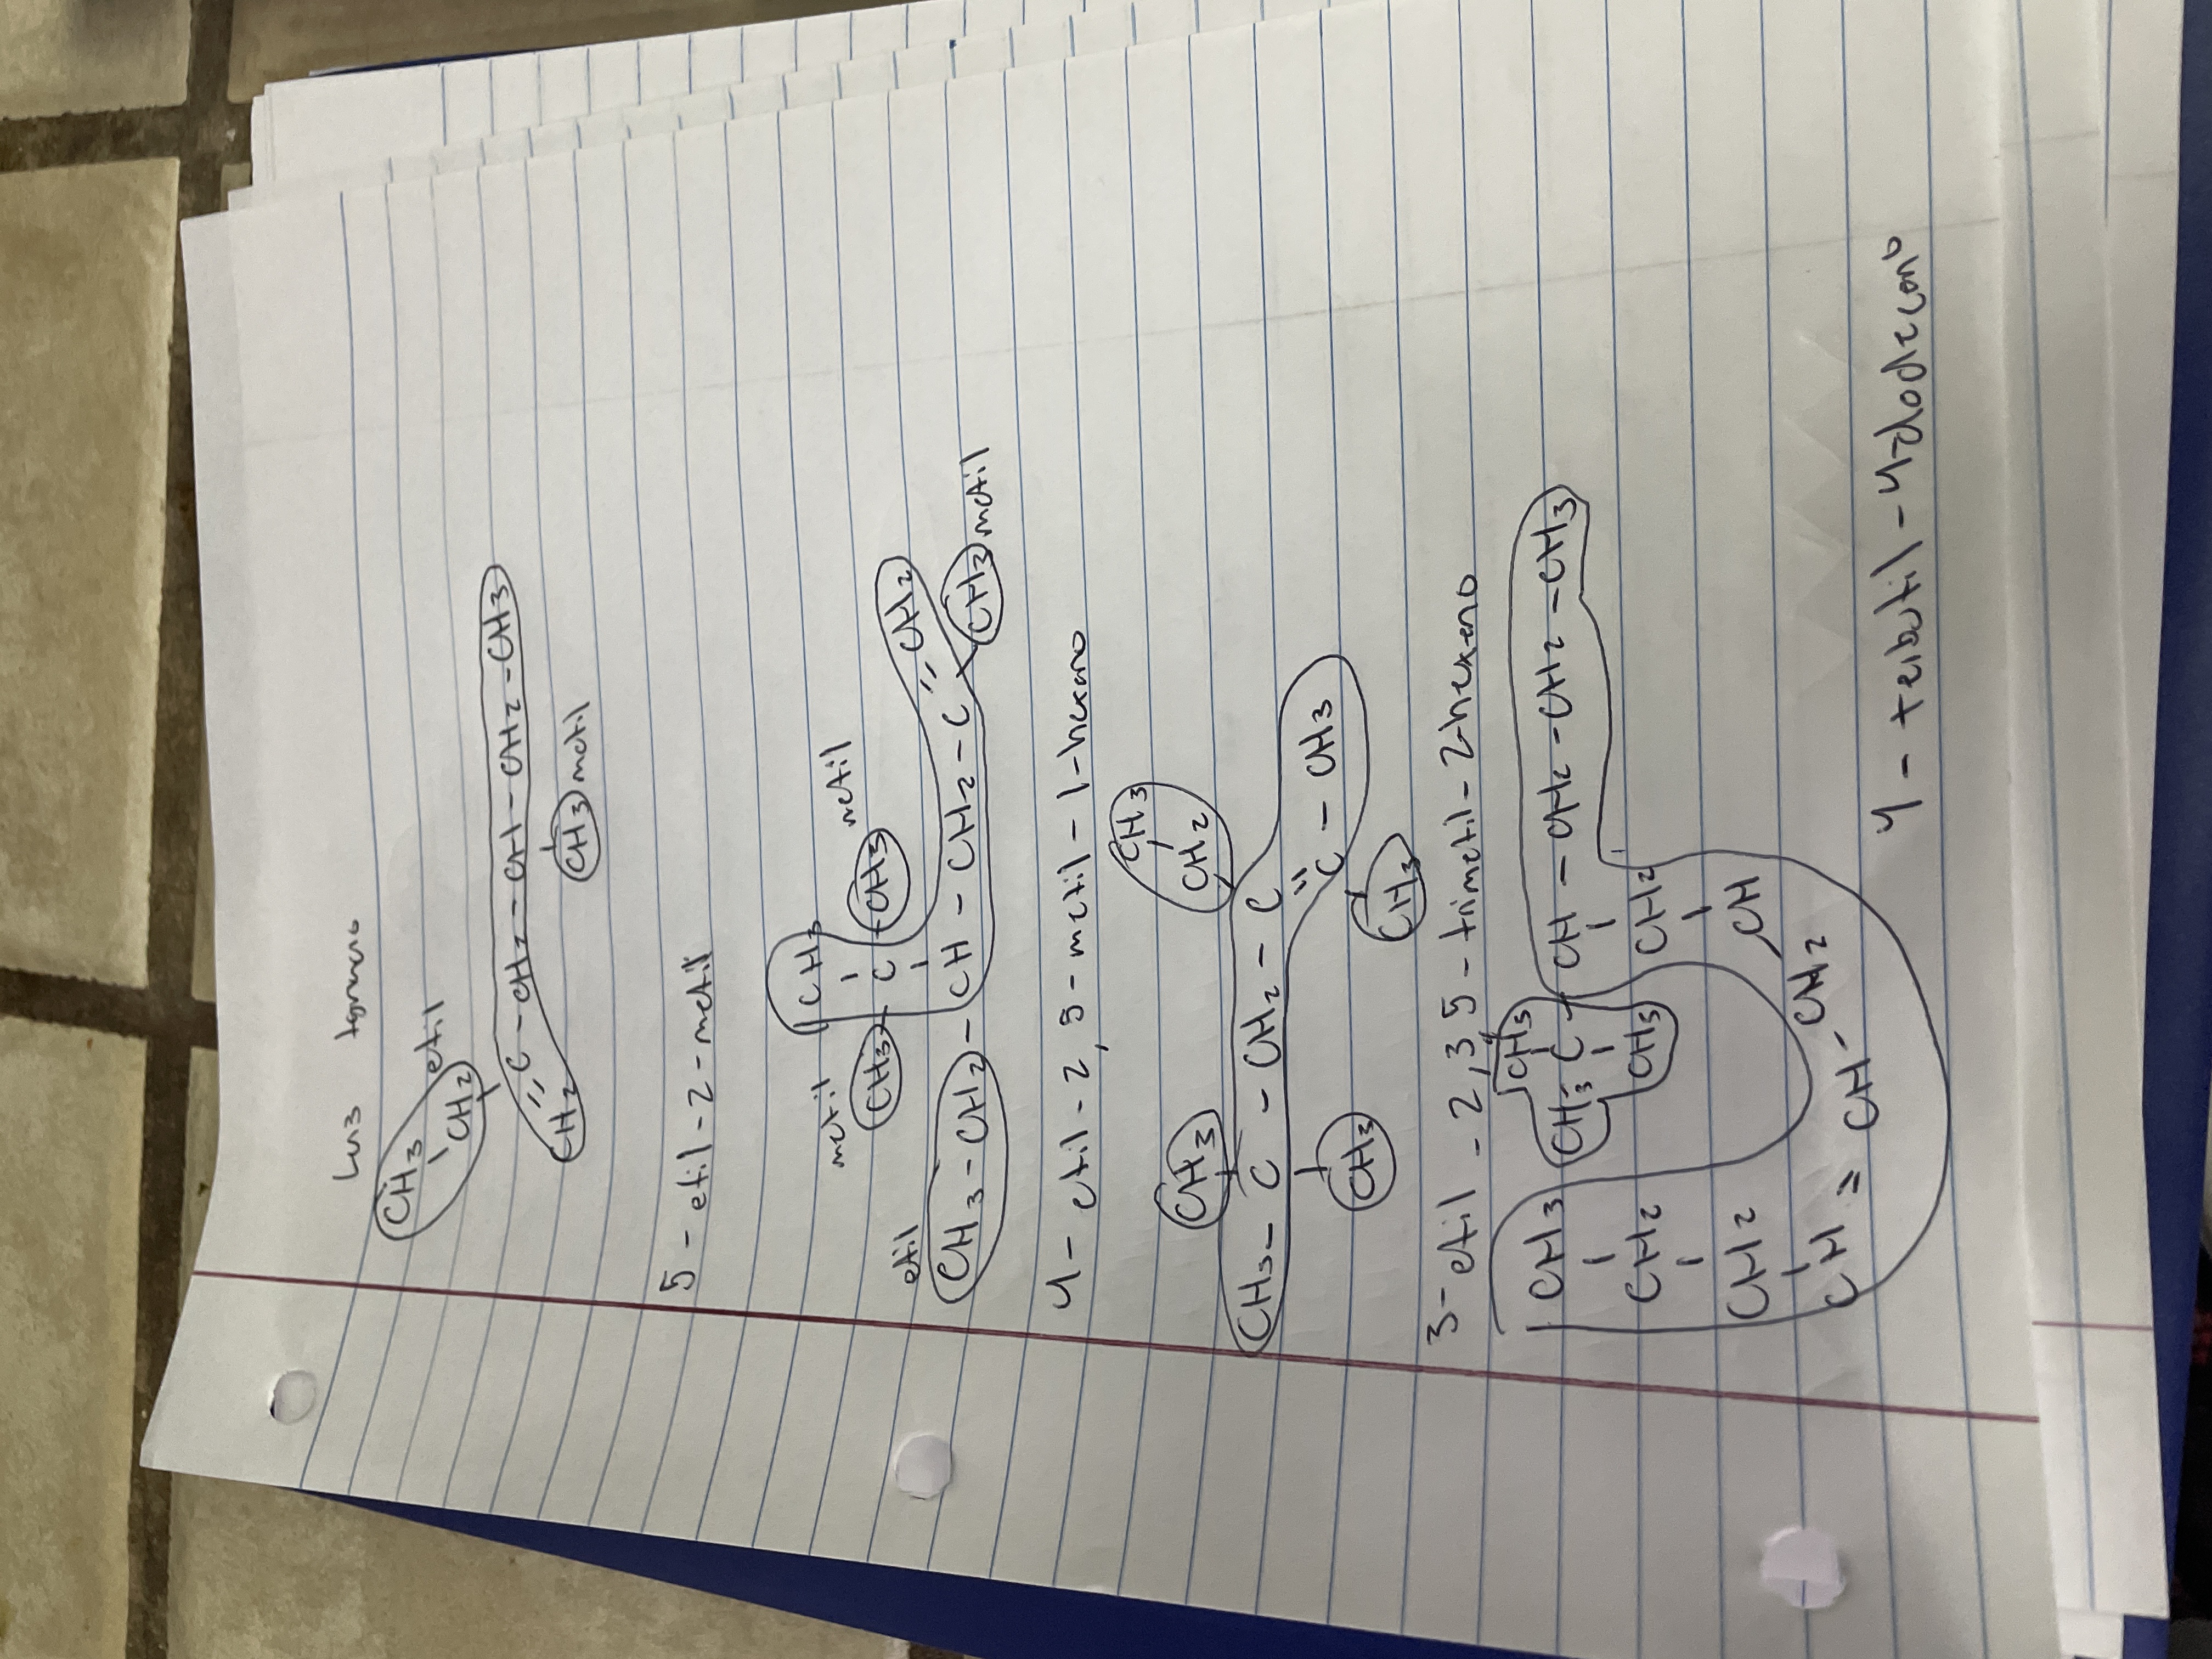 Luis
CH3 etil
CH2
CH2 = C - CH2 - CH - CH2 - CH3
CH3 metil
5 - etil - 2 - metil
metil CH3 metil
CH3 - C - CH3
etil
CH3 - CH2 - CH - CH2 - C = CH2
CH3 metil
4 - etil - 2, 5 - metil - 1 - hexeno
CH3
CH3 CH2
CH3 - C - CH2 - C
= C - CH3
CH3 CH3
3 - etil - 2,3,5 - trimetil - 2hexeno
CH3
CH3 CH3 - C - CH - CH2 - CH2 - CH2 - CH3
CH2 CH3 CH2
CH2 CH
CH = CH - CH2
4 - terbutil - 4-dodeceno